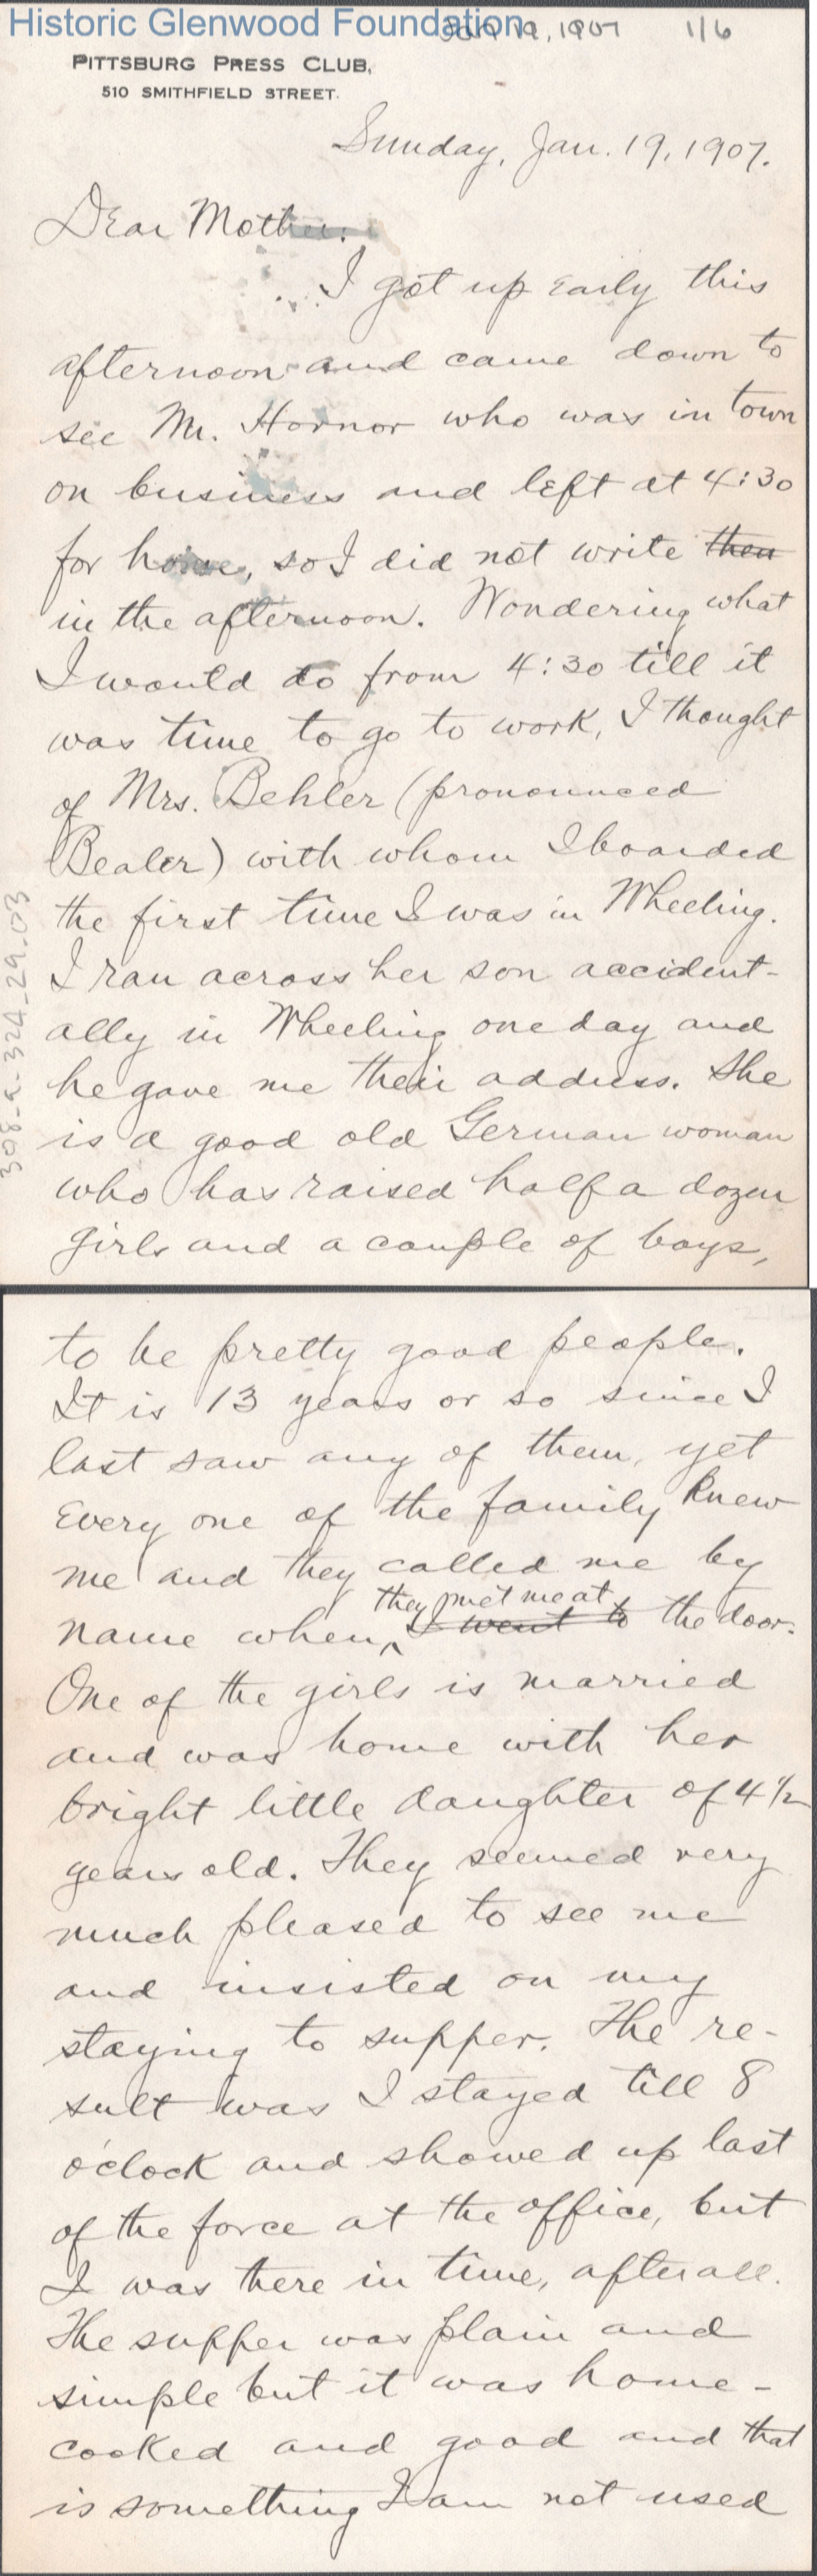 Historic Glenwood Foundation
Jan 19, 1907 1/6
PITTSBURG PRESS CLUB,
510 SMITHFIELD STREET.
Sunday, Jan. 19, 1907.
Dear Mother:
I got up early this
afternoon and came down to
see Mr. Hornor who was in town
on business and left at 4:30
for home, so I did not write then
in the afternoon. Wondering what
I would do from 4:30 till it
was time to go to work, I thought
of Mrs. Behler (pronounced
Bealer) with whom I boarded
the first time I was in Wheeling.
I ran across her son accident-
ally in Wheeling one day and
he gave me their address. She
is a good old German woman
who has raised half a dozen
girls and a couple of boys,
398-a-324-29-03
to be pretty good people.
It is 13 years or so since I
last saw any of them, yet
Every one of the family knew
me and they called me by
they met me at
name when I went to the door.
One of the girls is married
and was home with her
bright little daughter of 4 1/2
years old. They seemed very
much pleased to see me
and insisted on my
staying to supper. The re-
sult was I stayed till 8
o'clock and showed up last
of the force at the office, but
I was there in time, after all.
The supper was plain and
simple but it was home-
cooked and good and that
is something I am not used